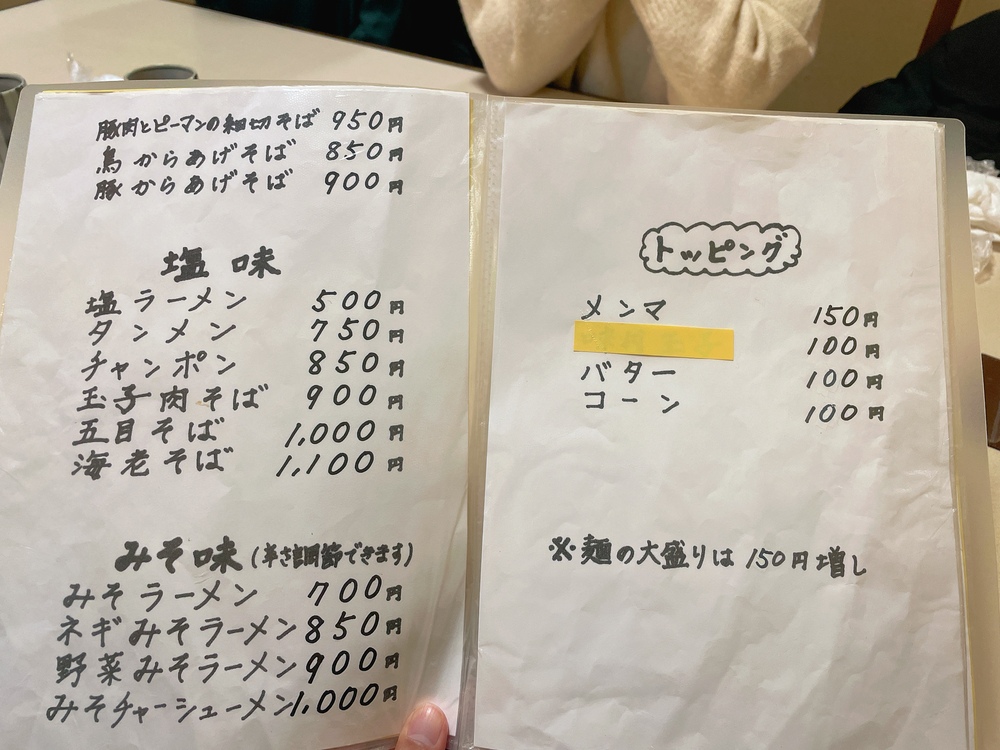 豚肉とピーマンの細切そば 950円
鳥からあげそば 850円
豚からあげそば 900円
塩味
塩ラーメン 500円
タンメン 750円
チャンポン 850円
玉子肉そば 900円
五目そば 1,000円
海老そば 1,100円
みそ味 (辛さ調節できます)
みそラーメン 700円
ネギみそラーメン 850円
野菜みそラーメン 900円
みそチャーシューメン 1,000円
トッピング
メンマ 150円
100円
バター 100円
コーン 100円
※麺の大盛りは150円増し